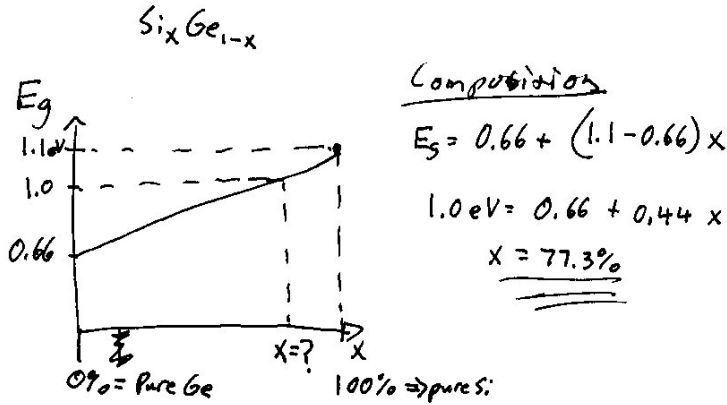 SiₓGe₁₋ₓ
Eg
1.1eV
1.0
0.66
x=?
x
0% = Pure Ge
100% ⇒ pure Si
Composition
Eg = 0.66 + (1.1-0.66) x
1.0 eV = 0.66 + 0.44 x
x = 77.3%